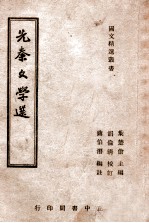 國文精選叢書
葉楚傖 主編
胡倫清 校訂
蔣伯潛 編註
先秦文學選
正中書局印行